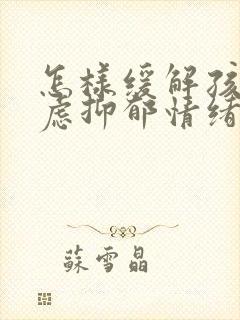 怎樣緩解孩
慮抑郁情緒
蘇雪晶